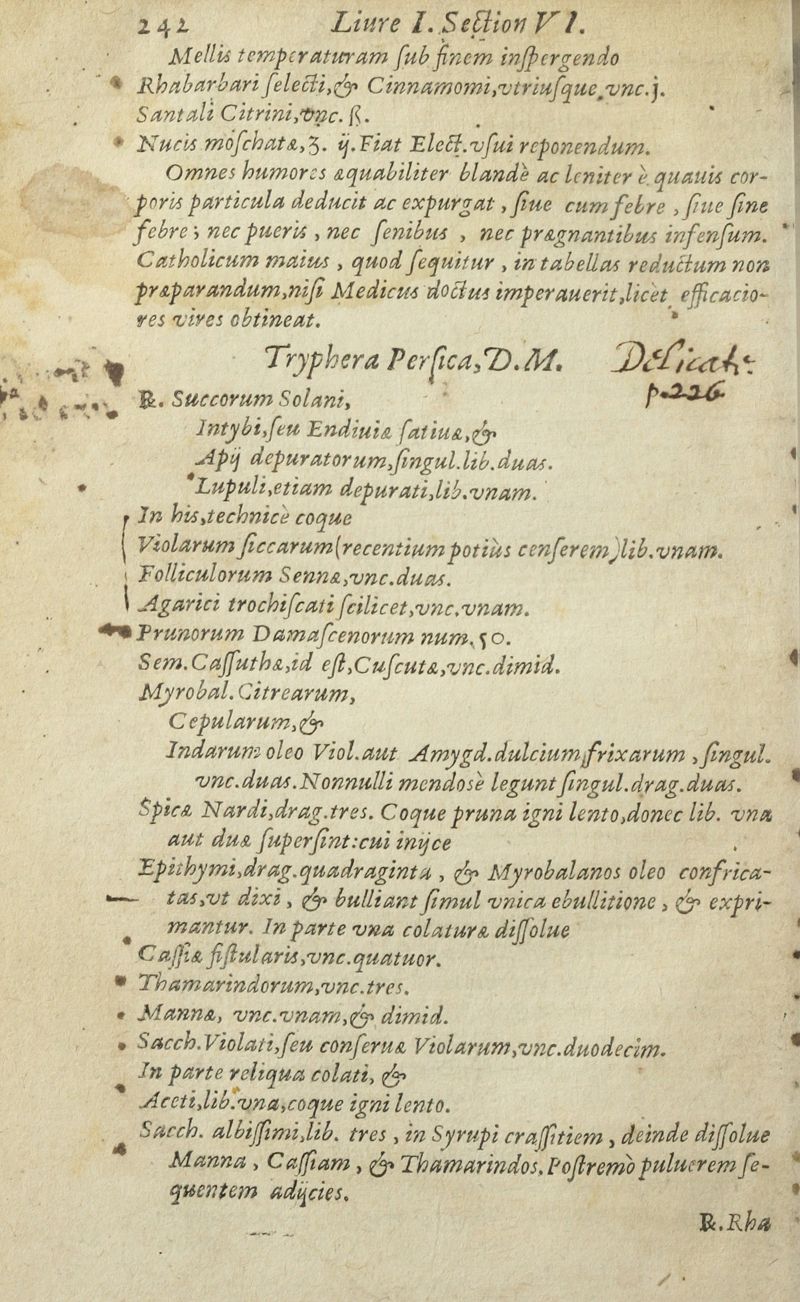 242 Liure I. Section VI.
Mellis temperaturam sub finem inspergendo
Rhabarbari selecti,& Cinnamomi,vtriusque,vnc.j.
Santali Citrini,vnc. ß.
Nucis moschatæ,ʒ. ij.Fiat Elect.vsui reponendum.
Omnes humores æquabiliter blandè ac leniter è quauis cor-
poris particula deducit ac expurgat , siue cum febre , siue sine
febre ; nec pueris , nec senibus , nec prægnantibus infensum.
Catholicum maius , quod sequitur , in tabellas reductum non
præparandum,nisi Medicus doctus imperauerit,licèt efficacio-
res vires obtineat.
Tryphera Persica,D.M. Delicate
p.226
℞. Succorum Solani,
Intybi,seu Endiuiæ satiuæ,&
Apij depuratorum,singul.lib.duas.
Lupuli,etiam depurati,lib.vnam.
In his,technicè coque
Violarum siccarum(recentium potiùs censerem)lib.vnam.
Folliculorum Sennæ,vnc.duas.
Agarici trochiscati scilicet,vnc.vnam.
Prunorum Damascenorum num.50.
Sem.Cassuthæ,id est,Cuscutæ,vnc.dimid.
Myrobal.Citrearum,
Cepularum,&
Indarum oleo Viol.aut Amygd.dulcium,frixarum , singul.
vnc.duas.Nonnulli mendosè legunt singul.drag.duas.
Spicæ Nardi,drag.tres. Coque pruna igni lento,donec lib. vna
aut duæ supersint:cui inijce
Epithymi,drag.quadraginta , & Myrobalanos oleo confrica-
tas,vt dixi , & bulliant simul vnica ebullitione , & expri-
mantur. In parte vna colaturæ dissolue
Cassiæ fistularis,vnc.quatuor.
Thamarindorum,vnc.tres.
Mannæ, vnc.vnam,& dimid.
Sacch.Violati,seu conseruæ Violarum,vnc.duodecim.
In parte reliqua colati, &
Aceti,lib.vna,coque igni lento.
Sacch. albissimi,lib. tres , in Syrupi crassitiem , deinde dissolue
Manna , Cassiam , & Thamarindos.Postremò puluerem se-
quentem adijcies.
℞.Rha